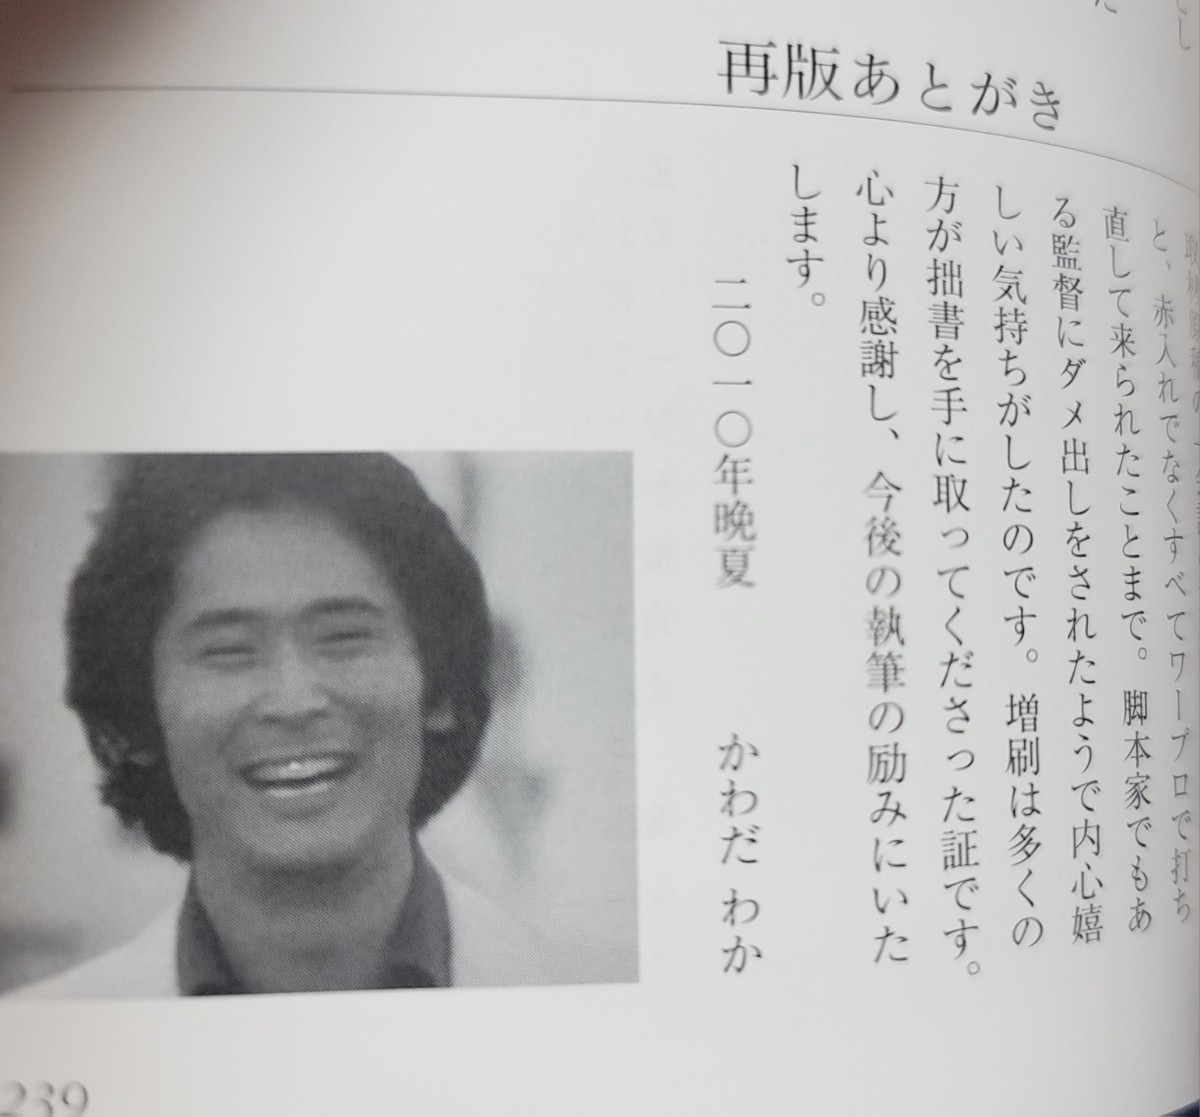 再版あとがき
と、赤入れでなくすべてワープロで打ち
直して来られたことまで。脚本家でもあ
る監督にダメ出しをされたようで内心嬉
しい気持ちがしたのです。増刷は多くの
方が拙書を手に取ってくださった証です。
心より感謝し、今後の執筆の励みにいた
します。
二〇一〇年晩夏　かわだ わか
239